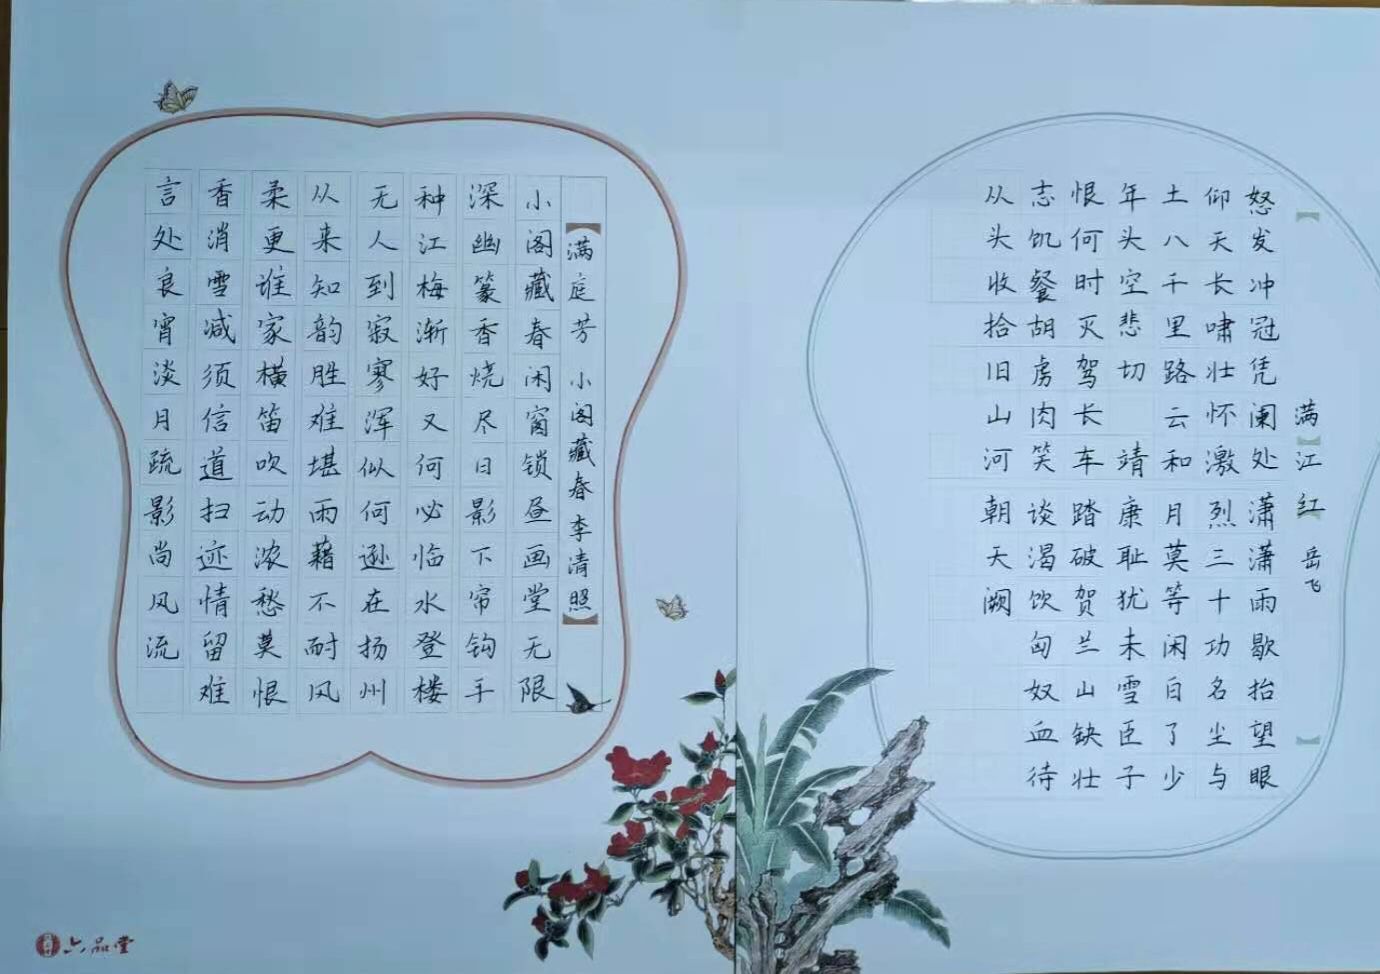 满江红 岳飞
怒发冲冠凭阑处潇潇雨歇抬望眼
仰天长啸壮怀激烈三十功名尘与
土八千里路云和月莫等闲白了少
年头空悲切 靖康耻犹未雪臣子
恨何时灭驾长车踏破贺兰山缺壮
志饥餐胡虏肉笑谈渴饮匈奴血待
从头收拾旧山河朝天阙
满庭芳 小阁藏春 李清照
小阁藏春闲窗锁昼画堂无限
深幽篆香烧尽日影下帘钩手
种江梅渐好又何必临水登楼
无人到寂寥浑似何逊在扬州
从来知韵胜难堪雨藉不耐风
柔更谁家横笛吹动浓愁莫恨
香消雪减须信道扫迹情留难
言处良宵淡月疏影尚风流
六品堂